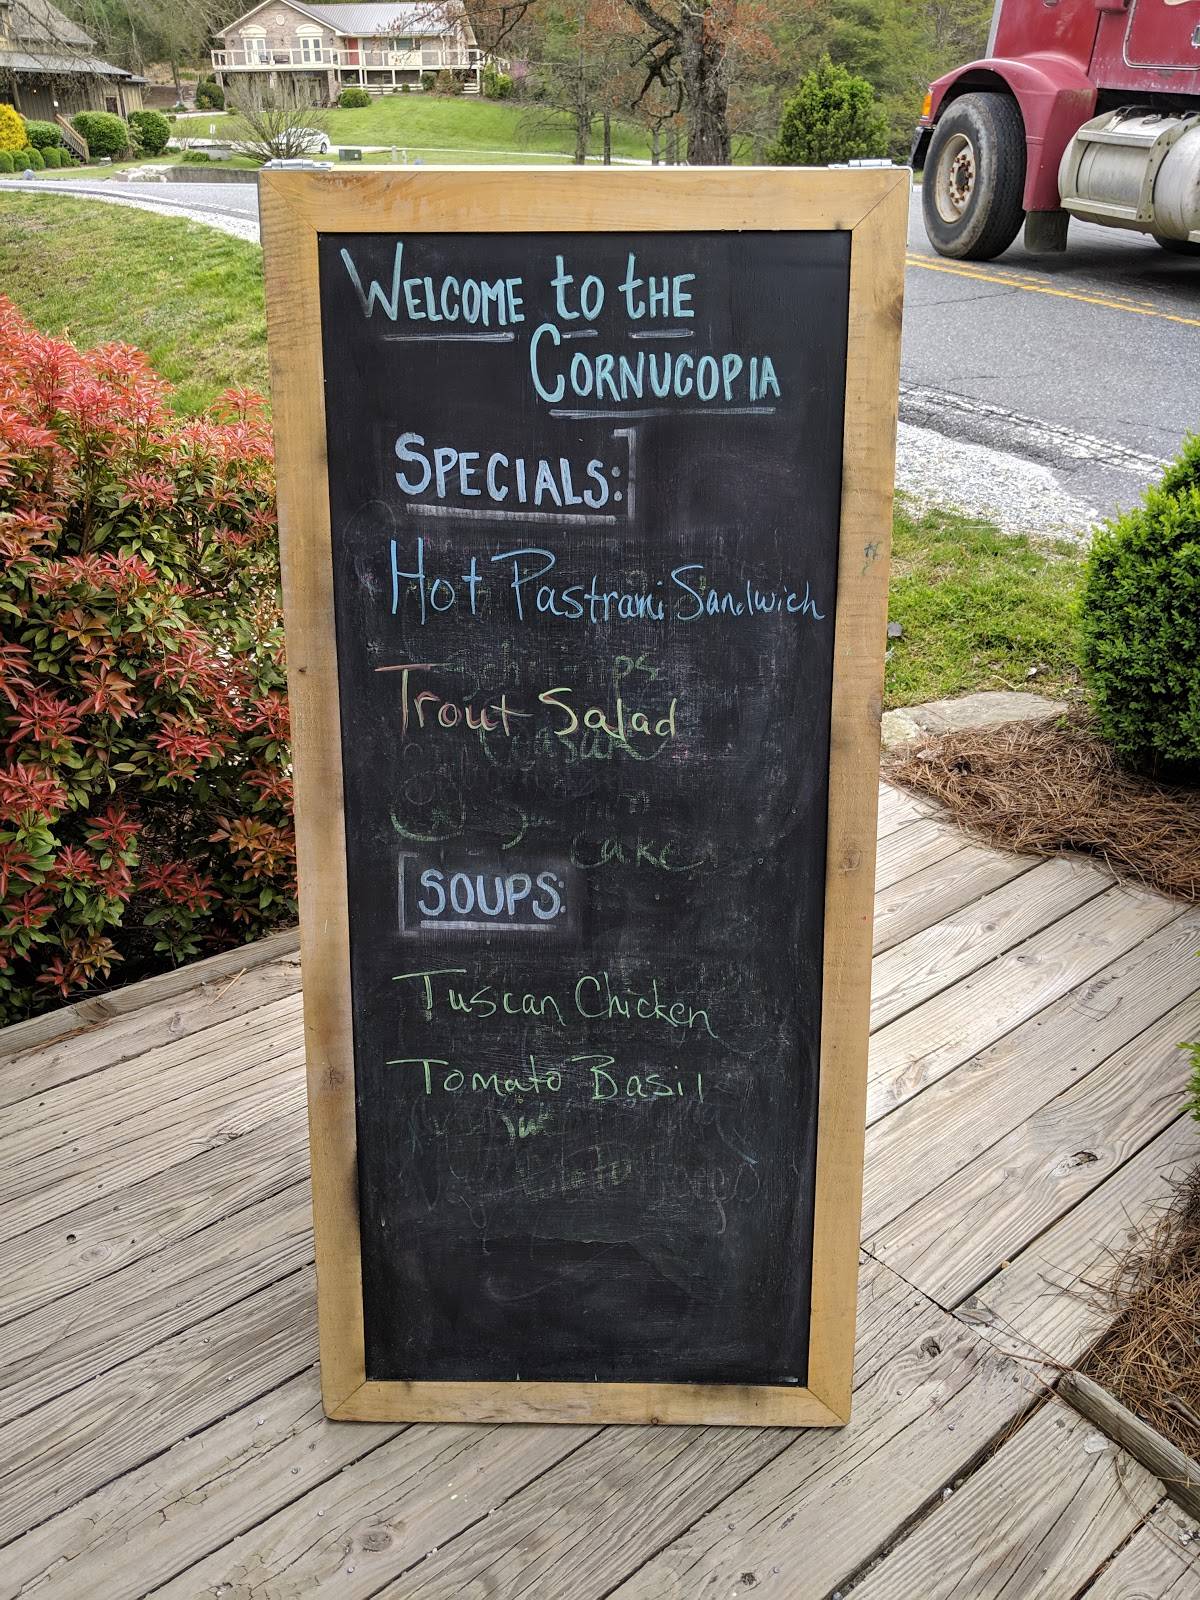 WELCOME to tHE
CORNUCOPIA
SPECIALS:
Hot Pastrami Sandwich
Trout Salad
cake
SOUPS:
Tuscan Chicken
Tomato Basil